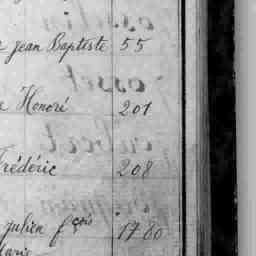 Jean Baptiste 55
Honoré 201
Frédéric 208
Julien fçois 1780
Marie